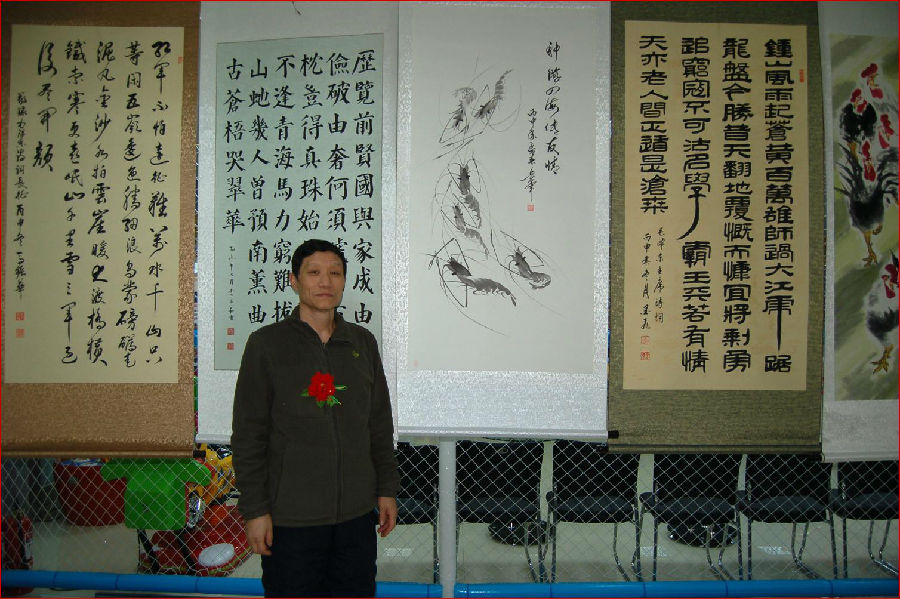 紅軍不怕遠征難萬水千山只
等閑五嶺逶迤騰細浪烏蒙磅礴走
泥丸金沙水拍雲崖暖大渡橋橫
鐵索寒更喜岷山千里雪三軍過
後盡開顏
歷覽前賢國與家成由
儉破由奢何須
枕豈得真珠始
不逢青海馬力窮難拔
山虵幾人曾預南薰曲
古蒼梧哭翠華
神游四海 友情
鍾山風雨起蒼黃百萬雄師過大江虎踞
龍盤今勝昔天翻地覆慨而慷宜將剩勇
追窮寇不可沽名學霸王天若有情
天亦老人間正道是滄桑
毛澤東主席詩詞
丙申年冬月